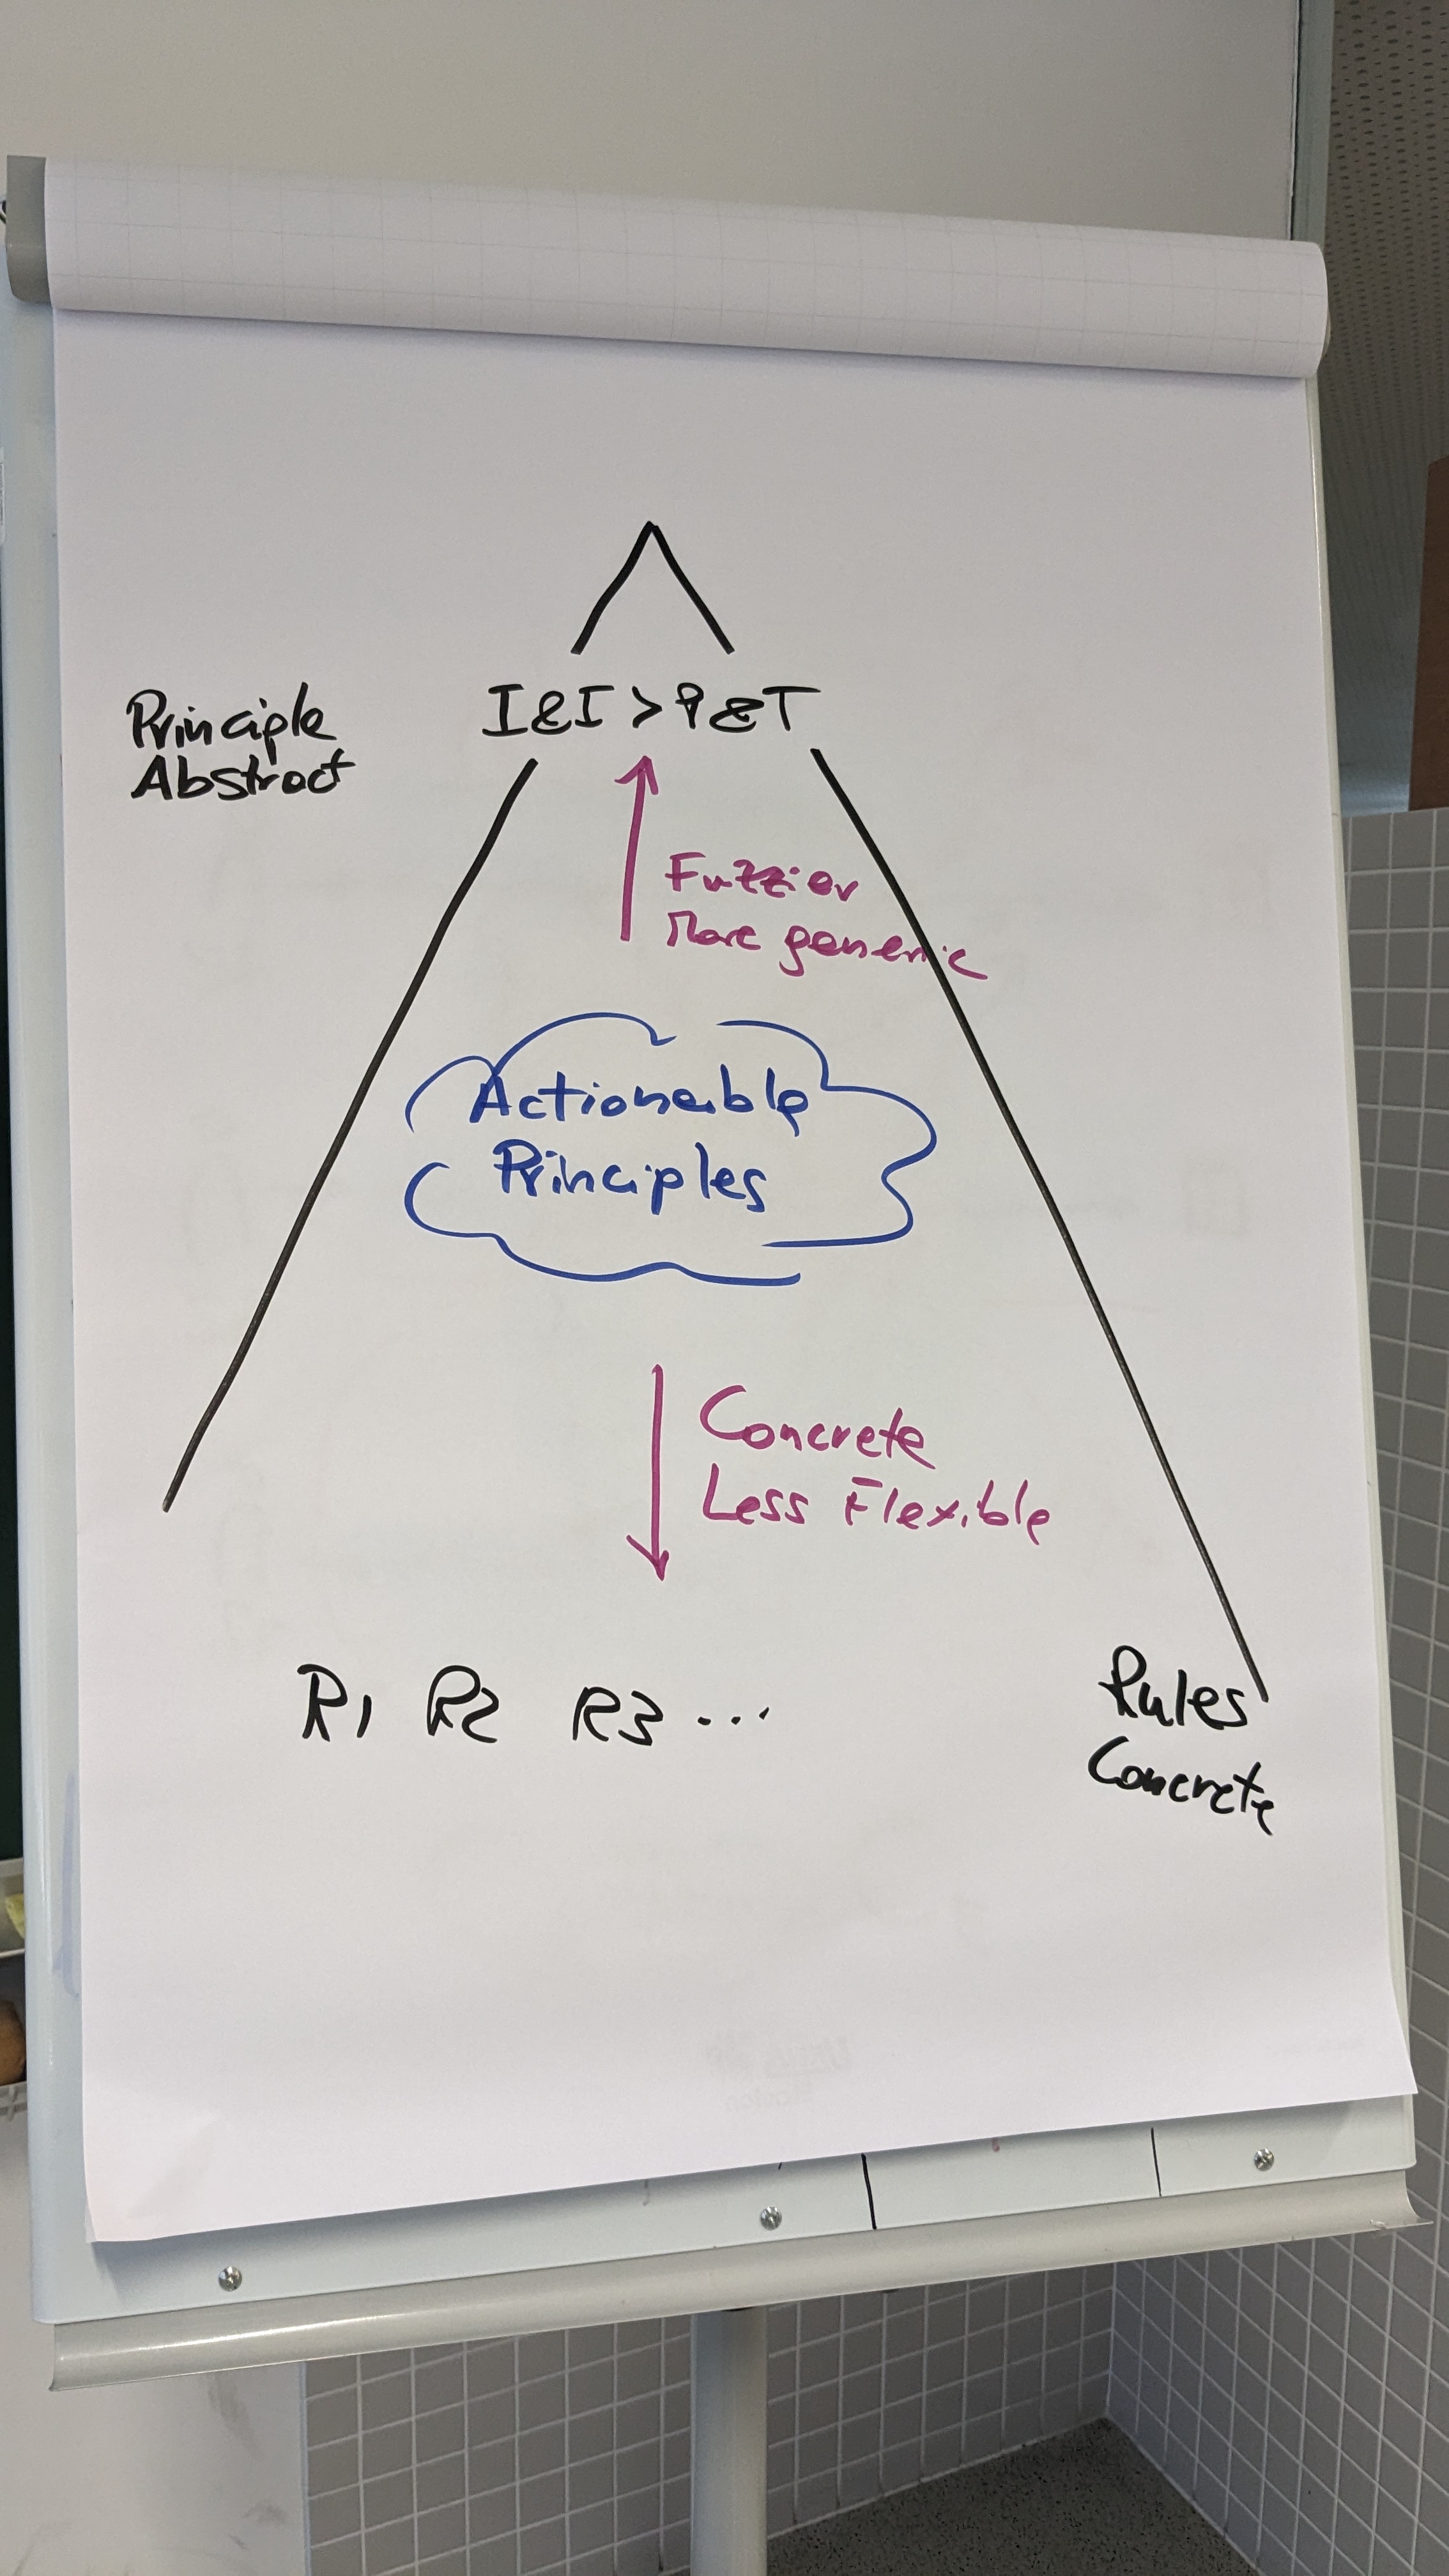 Principle
Abstract
I&I > P&T
Fuzzier
More generic
Actionable
Principles
Concrete
Less Flexible
R1 R2 R3 ...
Rules
Concrete